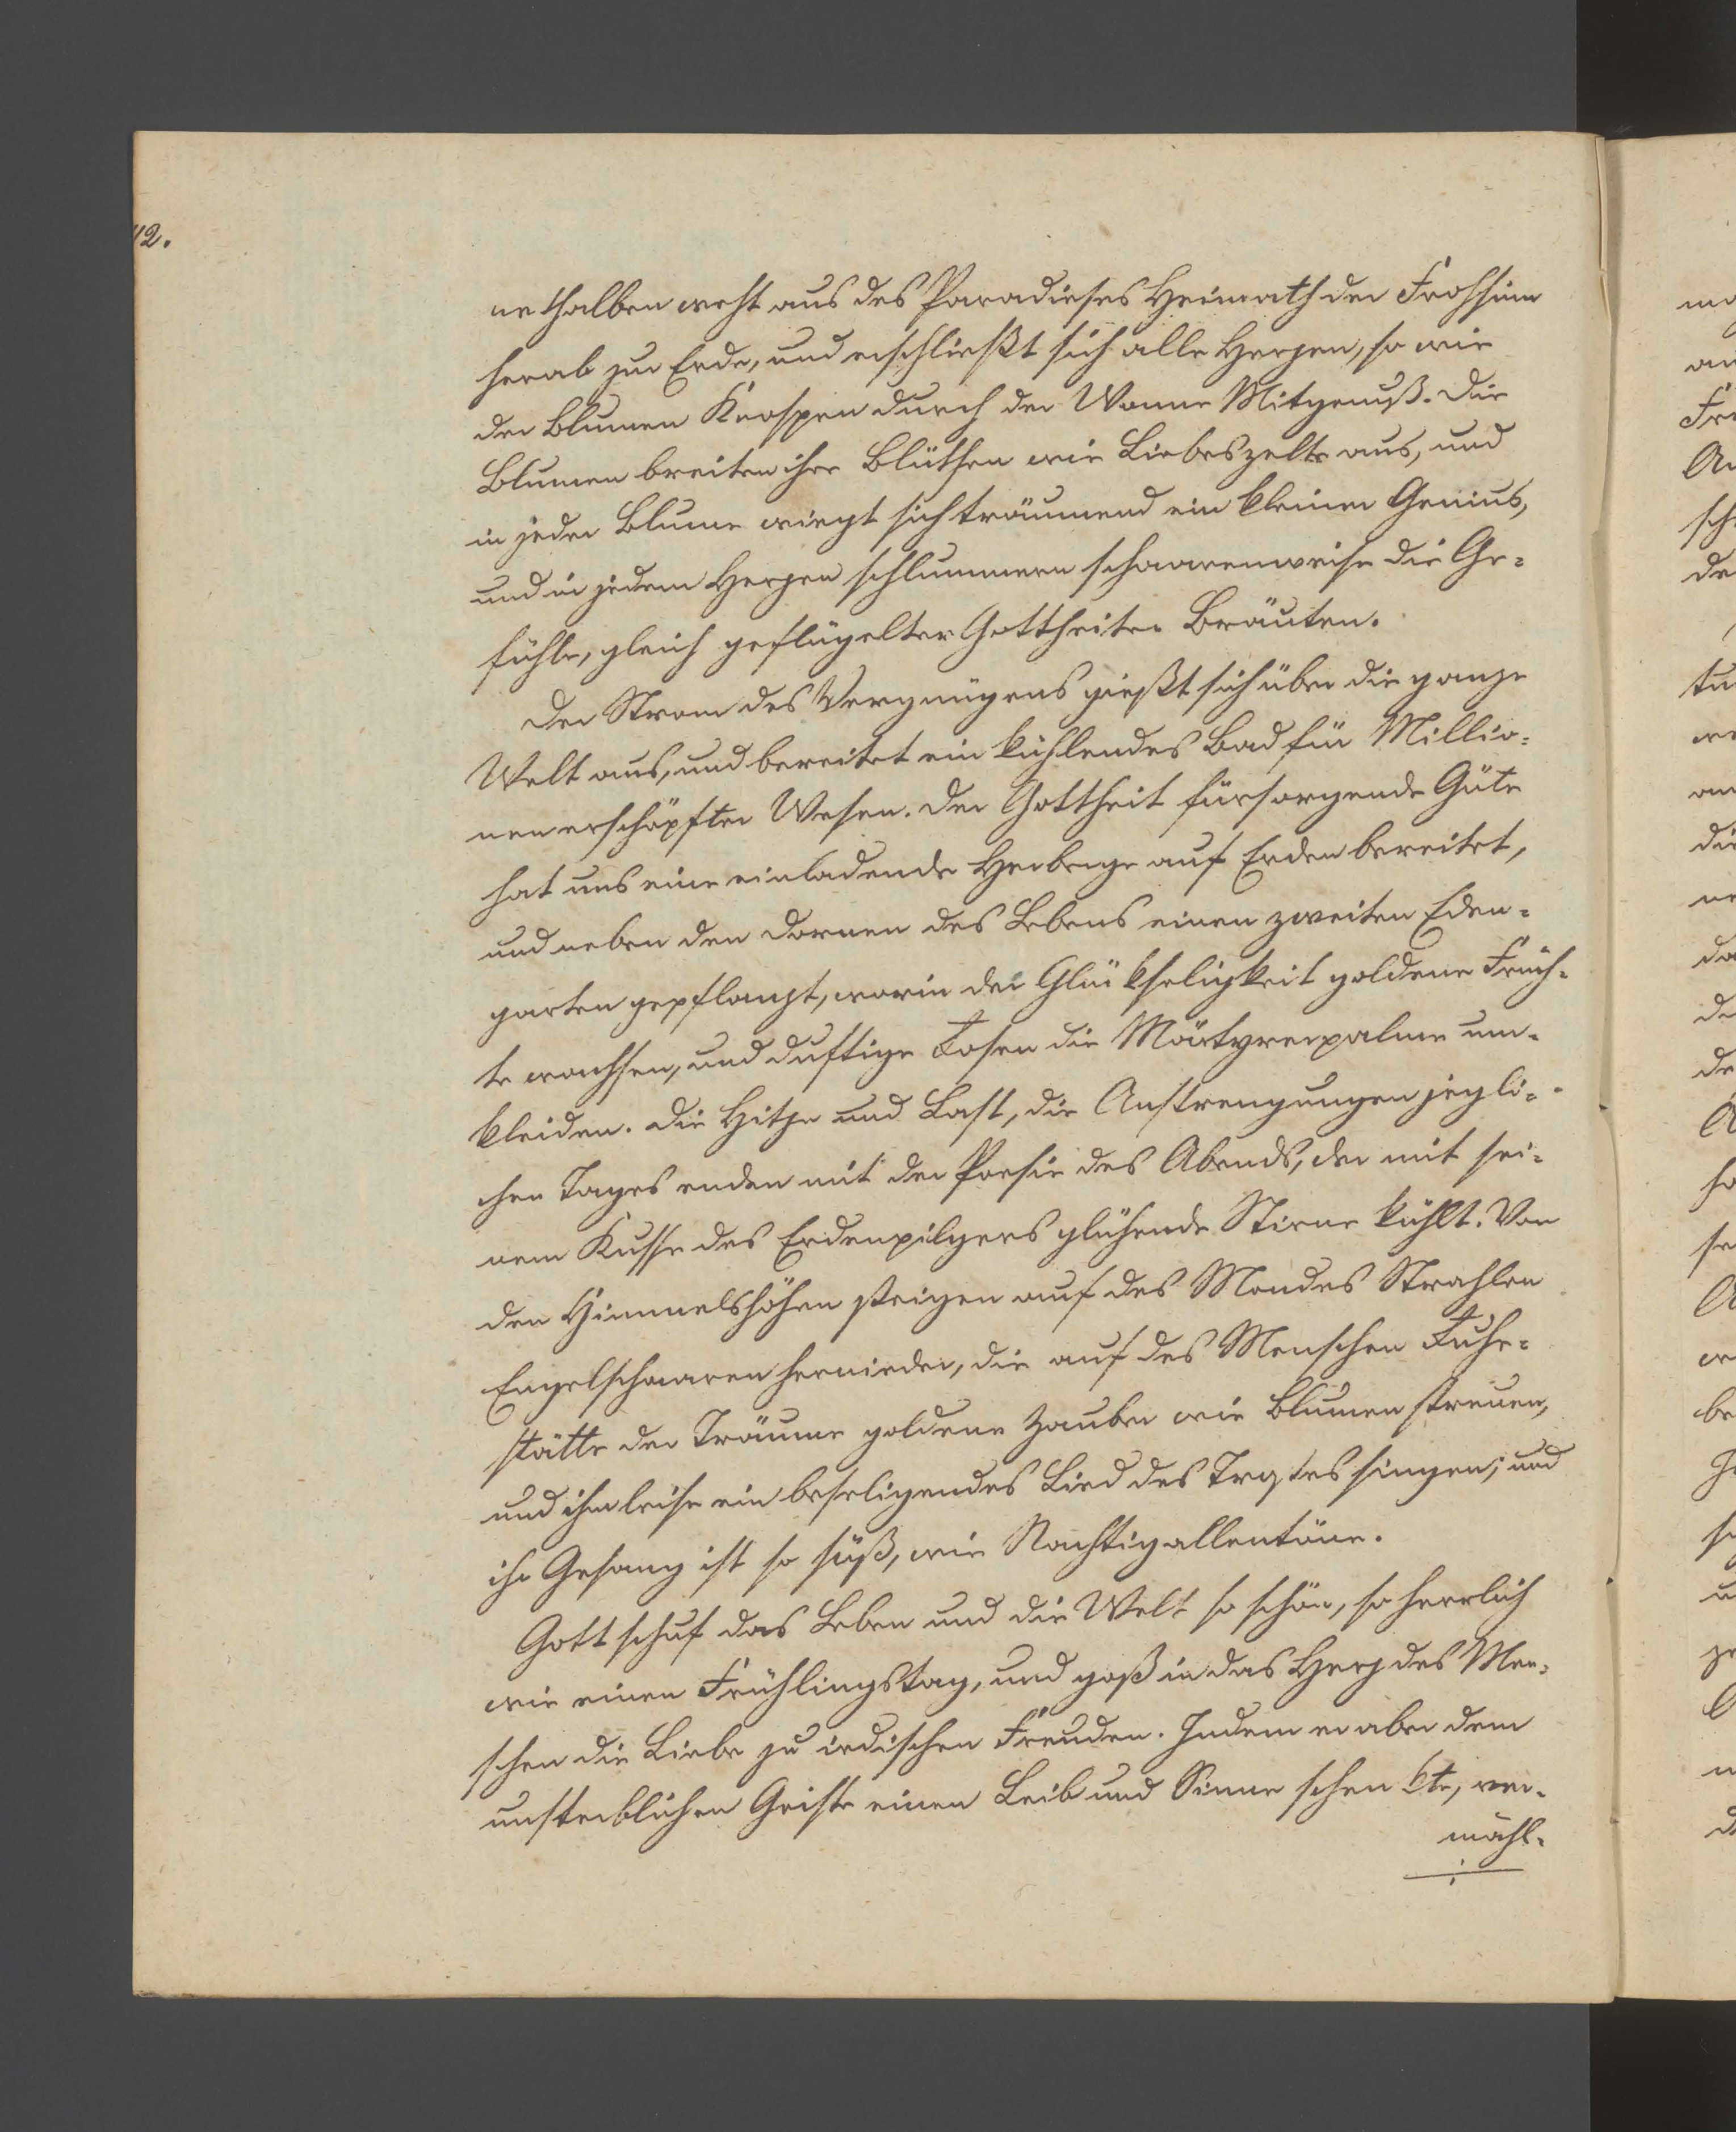 12.
nethalben weht aus des Paradieses Heimath der Frohsinn
herab zur Erde, und erschließt sich alle Herzen, so wie
der Blumen Knospen durch der Wonne Mitgenuß. Die
Blumen breiten ihre Blüthen wie Liebeszelte aus, und
in jeder Blume wiegt sich träumend ein kleiner Genius,
und in jedem Herzen schlummern schaarenweise die Ge-
fühle, gleich geflügelter Gottheiten Bräuten.
Der Strom des Vergnügens gießt sich über die ganze
Welt aus, und bereitet ein kühlendes Bad für Millio-
nen erschöpfter Wesen. Der Gottheit fürsorgende Güte
hat uns eine einladende Herberge auf Erden bereitet,
und neben den Dornen des Lebens einen zweiten Eden-
garten gepflanzt, worin der Glükseligkeit goldene Früch-
te wachsen, und duftige Rosen die Märtyrerpalme um-
kleiden. Die Hitze und Last, die Anstrengungen jegli-
chen Tages enden mit der Poesie des Abends, der mit sei-
nem Kusse des Erdenpilgers glühende Stirne kühlt. Von
den Himmelshöhen steigen auf des Mondes Strahlen
Engelschaaren hernieder, die auf des Menschen Ruhe-
stätte der Träume goldene Zauber wie Blumen streuen,
und ihm leise ein beseligendes Lied des Trostes singen; und
ihr Gesang ist so süß, wie Nachtigallentöne.
Gott schuf das Leben und die Welt so schön, so herrlich
wie einen Frühlingstag, und goß in das Herz des Men-
schen die Liebe zu irdischen Freuden. Indem er aber dem
unsterblichen Geiste einen Leib und Sinne schenkte, ver-
mähl-